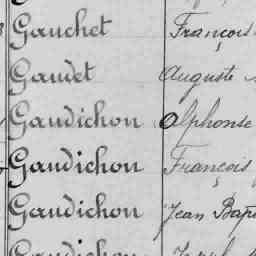 Gauchet François
Gaudet Auguste
Gaudichon Alphonse
Gaudichon François
Gaudichon Jean Bap
Gaudichon